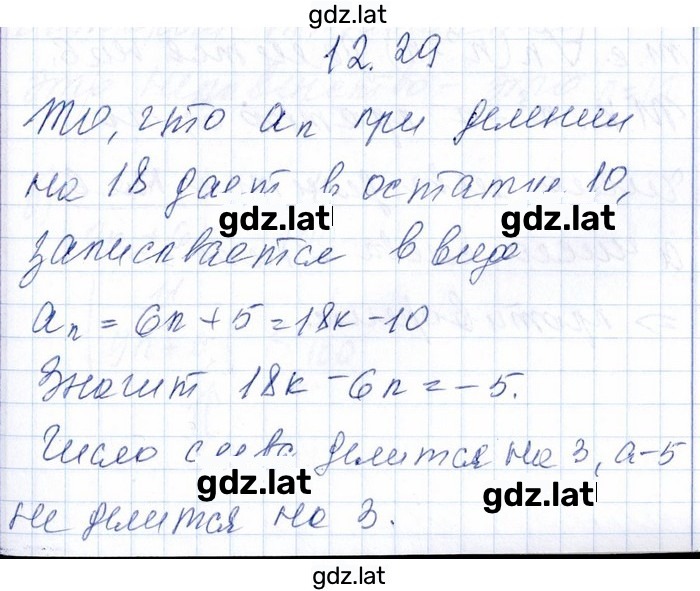 gdz.latl
12.29
то, что aₙ при делении
на 18 дает в остатке 10,
gdz.latl gdz.latl
записывается в виде
aₙ = 6n + 5 = 18k - 10
Значит 18k - 6n = -5.
Число слева делится на 3, а -5
gdz.latl gdz.latl
не делится на 3.
gdz.latl